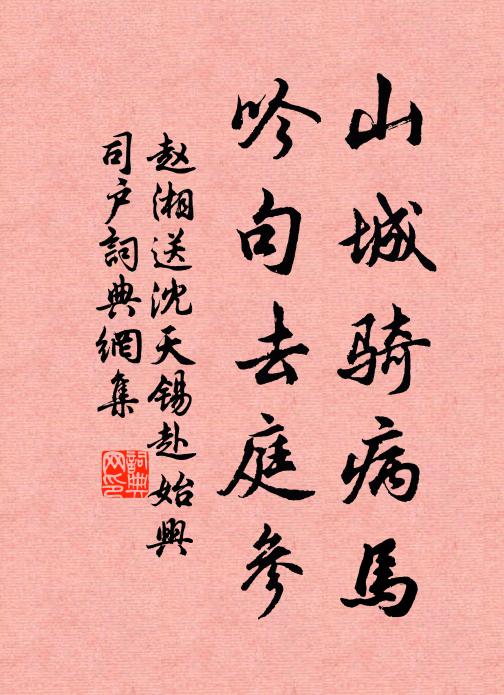 山城骑病馬
吟句去庭參
赵湘送沈天锡赴始興
司户詞典網集
詞典
网印